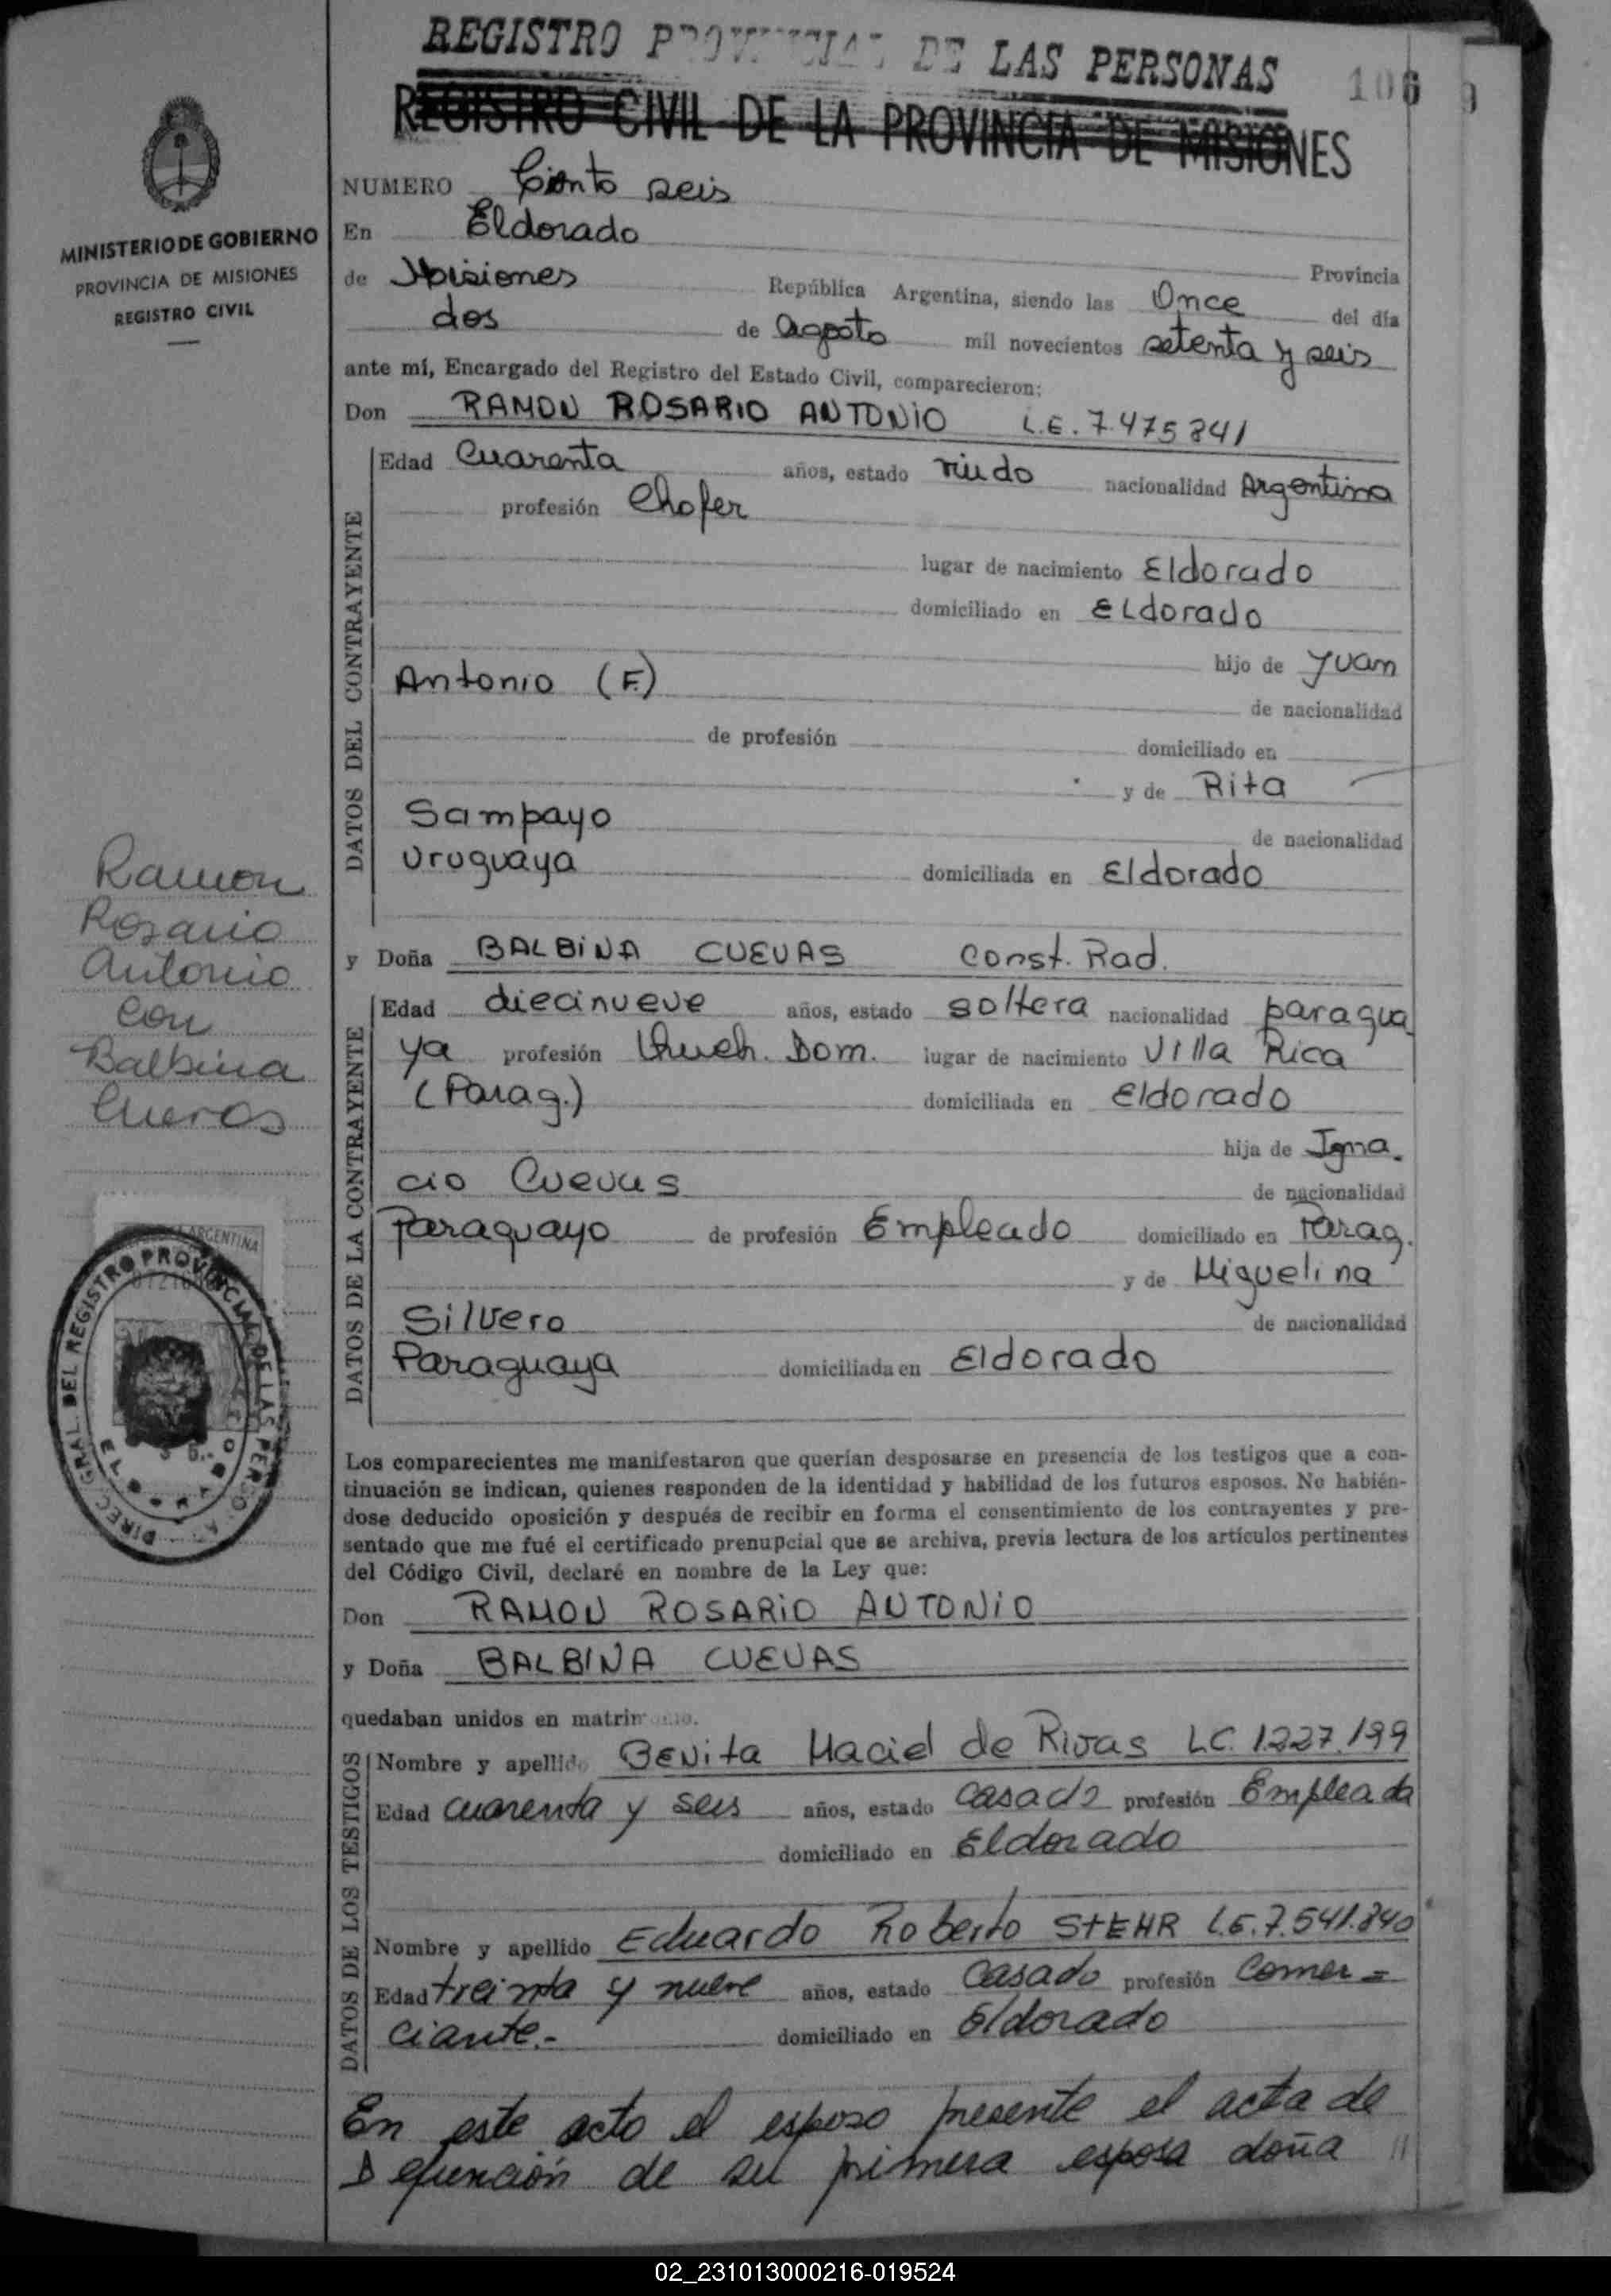 REGISTRO PROVINCIAL DE LAS PERSONAS
106
9
REGISTRO CIVIL DE LA PROVINCIA DE MISIONES
MINISTERIO DE GOBIERNO
PROVINCIA DE MISIONES
REGISTRO CIVIL
NUMERO Ciento seis
En Eldorado
Provincia
de Misiones República Argentina, siendo las Once del día
dos de agosto mil novecientos setenta y seis
ante mí, Encargado del Registro del Estado Civil, comparecieron:
Don RAMON ROSARIO ANTONIO L.E. 7.475841
DATOS DEL CONTRAYENTE
Edad Cuarenta años, estado viudo nacionalidad Argentina
profesión Chofer
lugar de nacimiento Eldorado
domiciliado en ELdorado
hijo de Juan
Antonio (F.)
de nacionalidad
de profesión domiciliado en
y de Rita
Sampayo
de nacionalidad
Uruguaya domiciliada en Eldorado
Ramon
Rosario
Antonio
con
Balbina
Cuevas
y Doña BALBINA CUEVAS Const. Rad.
DATOS DE LA CONTRAYENTE
Edad diecinueve años, estado soltera nacionalidad paragua
ya profesión Dom. lugar de nacimiento Villa Rica
(Parag.) domiciliada en Eldorado
hija de Igna.
cio Cuevas de nacionalidad
Paraguayo de profesión Empleado domiciliado en Parag.
y de Miguelina
Silvero de nacionalidad
Paraguaya domiciliada en Eldorado
ARGENTINA
DIREC. GRAL. DEL REGISTRO PROVINCIAL DE LAS PERSONAS
Los comparecientes me manifestaron que querían desposarse en presencia de los testigos que a con-
tinuación se indican, quienes responden de la identidad y habilidad de los futuros esposos. No habién-
dose deducido oposición y después de recibir en forma el consentimiento de los contrayentes y pre-
sentado que me fué el certificado prenupcial que se archiva, previa lectura de los artículos pertinentes
del Código Civil, declaré en nombre de la Ley que:
Don RAMON ROSARIO ANTONIO
y Doña BALBINA CUEVAS
quedaban unidos en matrimonio.
DATOS DE LOS TESTIGOS
Nombre y apellido BENita Maciel de Rivas LC. 1.227.199
Edad cuarenta y seis años, estado casada profesión Empleada
domiciliado en Eldorado
Nombre y apellido Eduardo Roberto STEHR L.E.7.541.840
Edad treinta y nueve años, estado Casado profesión Comer=
ciante.- domiciliado en Eldorado
En este acto el esposo presente el acta de
Defunción de su primera esposa doña //
02_231013000216-019524